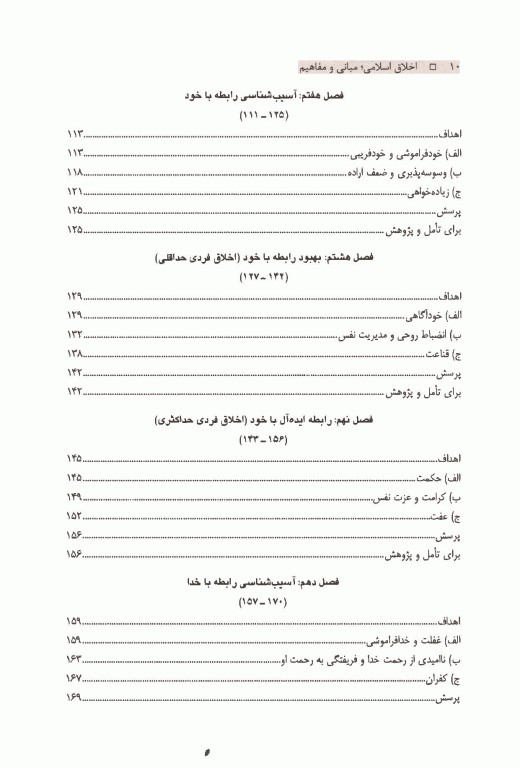 ۱۰ □ اخلاق اسلامی؛ مبانی و مفاهیم
فصل هفتم: آسیب‌شناسی رابطه با خود
(۱۲۵ – ۱۱۱)
اهداف ۱۱۳
الف) خودفراموشی و خودفریبی ۱۱۳
ب) وسوسه‌پذیری و ضعف اراده ۱۱۸
ج) زیاده‌خواهی ۱۲۱
پرسش ۱۲۵
برای تأمل و پژوهش ۱۲۵
فصل هشتم: بهبود رابطه با خود (اخلاق فردی حداقلی)
(۱۴۲ – ۱۲۷)
اهداف ۱۲۹
الف) خودآگاهی ۱۲۹
ب) انضباط روحی و مدیریت نفس ۱۳۲
ج) قناعت ۱۳۸
پرسش ۱۴۲
برای تأمل و پژوهش ۱۴۲
فصل نهم: رابطه ایده‌آل با خود (اخلاق فردی حداکثری)
(۱۵۶ – ۱۴۳)
اهداف ۱۴۵
الف) حکمت ۱۴۵
ب) کرامت و عزت نفس ۱۴۹
ج) عفت ۱۵۲
پرسش ۱۵۶
برای تأمل و پژوهش ۱۵۶
فصل دهم: آسیب‌شناسی رابطه با خدا
(۱۷۰ – ۱۵۷)
اهداف ۱۵۹
الف) غفلت و خدافراموشی ۱۵۹
ب) ناامیدی از رحمت خدا و فریفتگی به رحمت او ۱۶۳
ج) کفران ۱۶۷
پرسش ۱۶۹